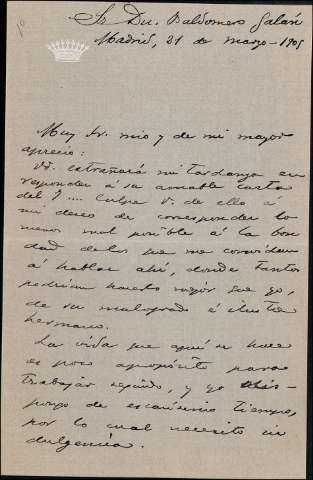 Sr Dn. Baldomero Galán
Madrid, 21 de marzo - 1905
Muy Sr. mio y de mi mayor
aprecio:
Vd. extrañará mi tardanza en
responder á su amable carta
del 7.... Culpe V. de ello á
mi deseo de corresponder lo
menos mal posible á la bon
dad de los que me convidan
á hablar ahí, donde tantos
podrían hacerlo mejor que yo,
de su malogrado é ilustre
hermano.
La vida que aquí se hace
es poco apropósito para
trabajar seguido, y yo dis-
pongo de escasísimo tiempo,
por lo cual necesito in
dulgencia.